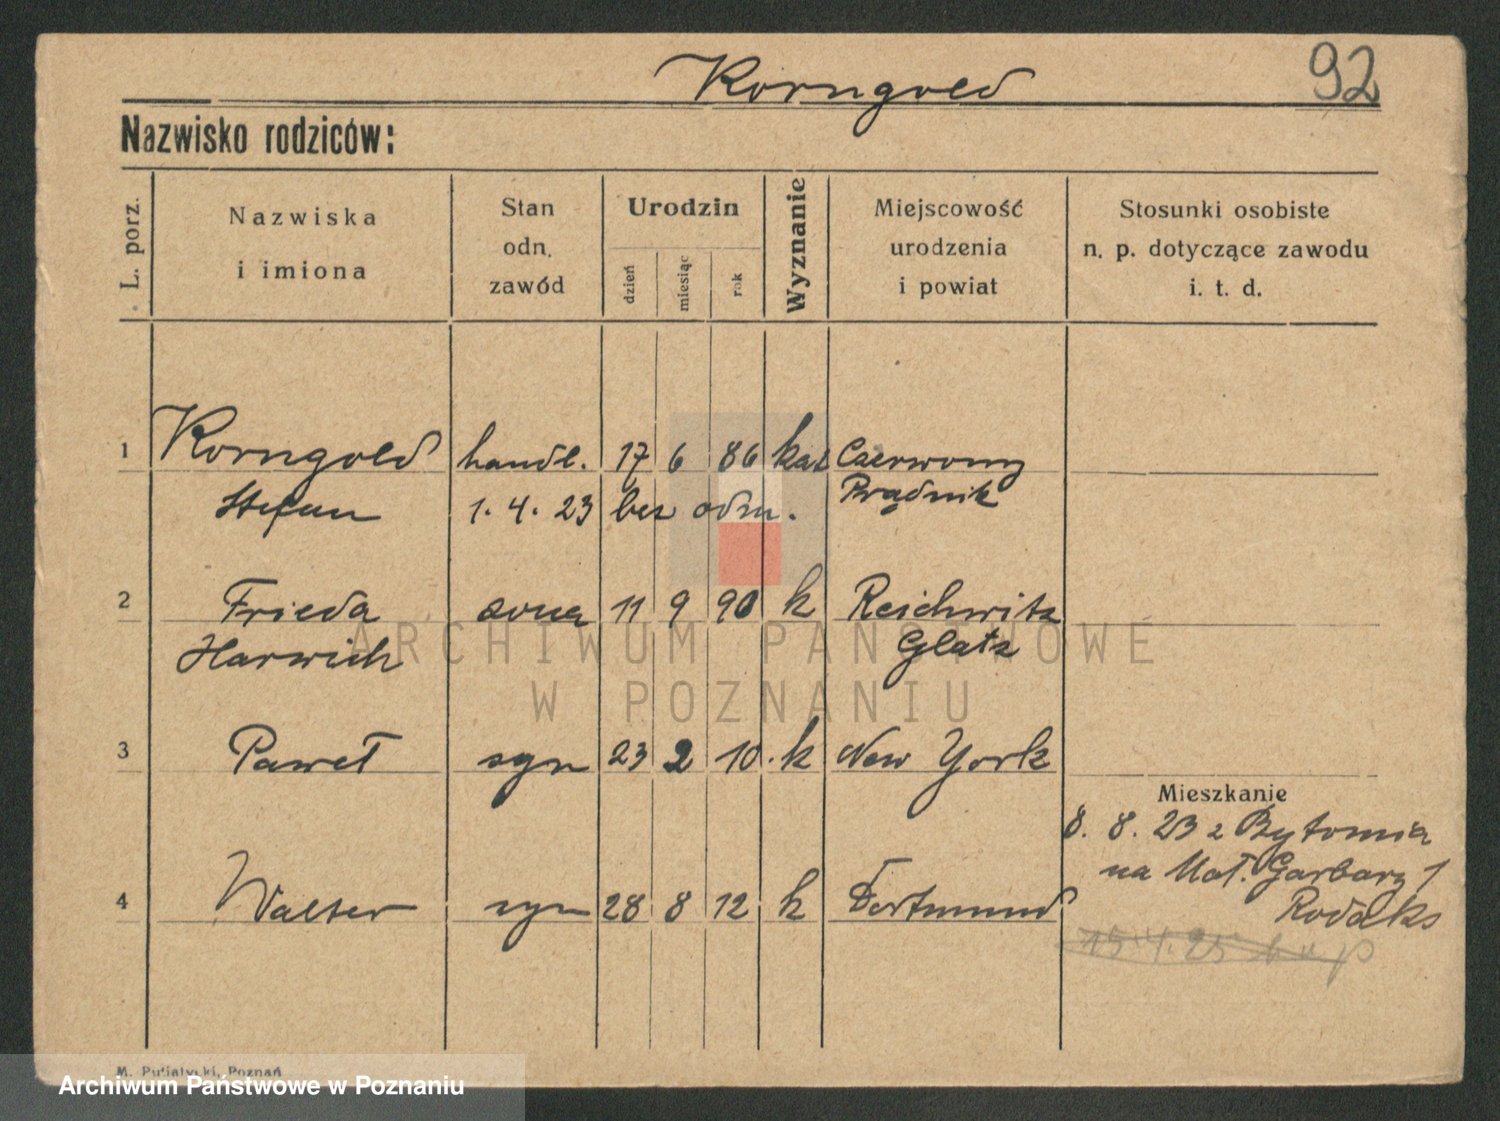 Korngold 92
Nazwisko rodziców:
L. porz.
Nazwiska
i imiona
Stan
odn.
zawód
Urodzin
dzień
miesiąc
rok
Wyznanie
Miejscowość
urodzenia
i powiat
Stosunki osobiste
n. p. dotyczące zawodu
i. t. d.
1 Korngold handl. 17 6 86 kat Czerwony
Stefan 1. 4. 23 bez odm. Prądnik
2 Frieda żona 11 9 90 k Reichwitz
Harwich Glatz
3 Paweł syn 23 2 10 k New York
Mieszkanie
8. 8. 23 z Bytomia
na Mał. Garbary 1
4 Walter syn 28 8 12 k Dortmund Rodaks
15.4.25
M. Putiatycki, Poznań
ARCHIWUM PAŃSTWOWE
W POZNANIU
Archiwum Państwowe w Poznaniu